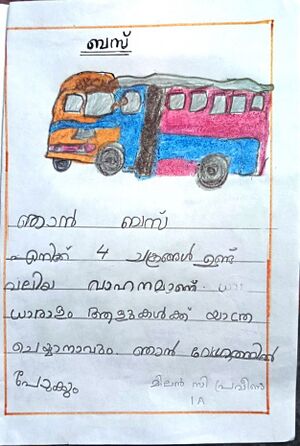 ബസ്
ഞാൻ ബസ്
എനിക്ക് 4 ചക്രങ്ങൾ ഉണ്ട്
വലിയ വാഹനമാണ്.
ധാരാളം ആളുകൾക്ക് യാത്ര
ചെയ്യാനാവും. ഞാൻ വേഗത്തിൽ
പോകും
മിലൻ സി പ്രവീൺ
1A